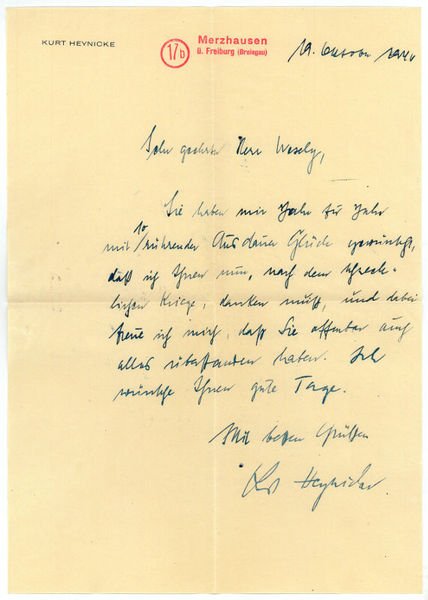 KURT HEYNICKE
17b
Merzhausen
ü. Freiburg (Breisgau)
19. Oktober
Sehr geehrter Herr Wesely,
Sie haben mir Jahr für Jahr
mit so rührender Ausdauer Glück gewünscht,
daß ich Ihnen nun, nach dem schreck-
lichen Kriege, danken muß, und dabei
freue ich mich, daß Sie offenbar auch
alles überstanden haben. Ich
wünsche Ihnen gute Tage.
Mit besten Grüßen
Kurt Heynicke